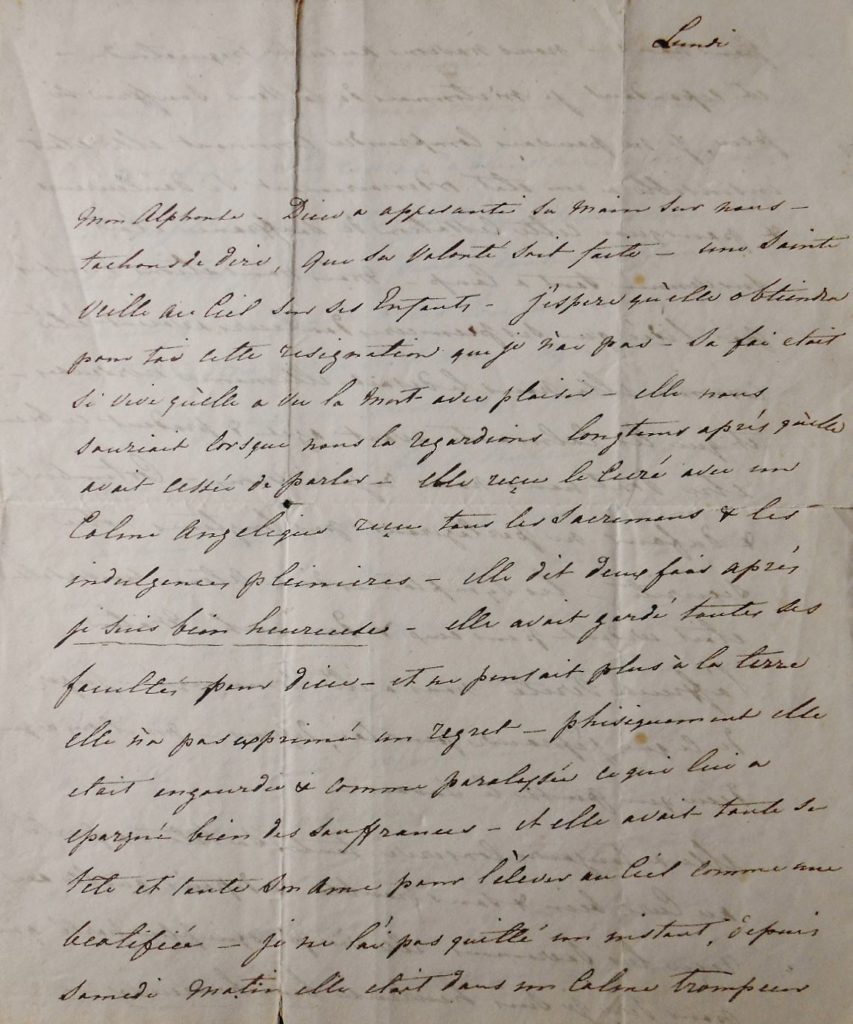 Lundi
Mon Alphonse – Dieu a appesanti sa main sur nous –
tachons de dire, que sa Volonté soit faite – une Sainte
Veille au Ciel sur ses Enfants – j'espere qu'elle obtiendra
pour toi cette resignation que je n'ai pas – sa foi etait
si vive qu'elle a vu la Mort avec plaisir – elle nous
souriait lorsque nous la regardions longtems après qu'elle
avait cessée de parler – elle reçu le Curé avec un
Calme Angelique reçu tous les Sacremans & les
indulgences pleinieres – elle dit deux fois après
je suis bien heureuse – elle avait gardé toutes ses
facultés pour dieu – et ne pensait plus à la terre
elle n'a pas exprimé un regret – phisiquement elle
etait engourdie & comme paralysée ce qui lui a
epargné bien des souffrances – et elle avait toute sa
tête et toute son ame pour l'élever au Ciel comme une
beatifiée – je ne l'ai pas quitté un instant, depuis
samedi Matin elle etait dans un Calme trompeur